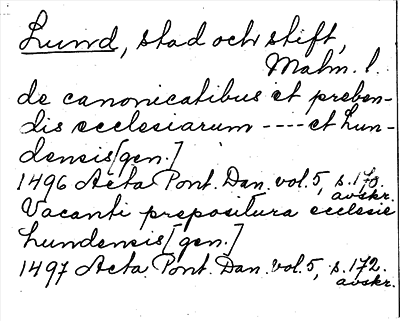 Lund, stad och stift,
Malm. l.
de canonicatibus et preben-
dis ecclesiarum ---- et Lun-
densis [gen.]
1496 Acta Pont. Dan. vol. 5, s. 170.
avskr.
Vacanti prepositura ecclesie
Lundensis [gen.]
1497 Acta Pont. Dan. vol. 5, s. 172.
avskr.